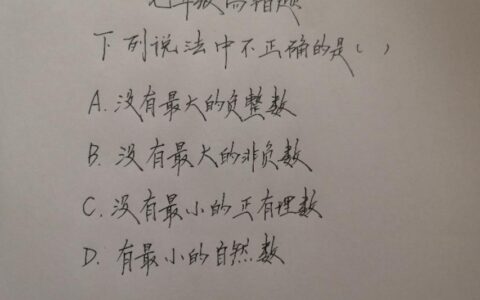 七年级高错题
下列说法中不正确的是( )
A.没有最大的负整数
B.没有最大的非负数
C.没有最小的正有理数
D.有最小的自然数